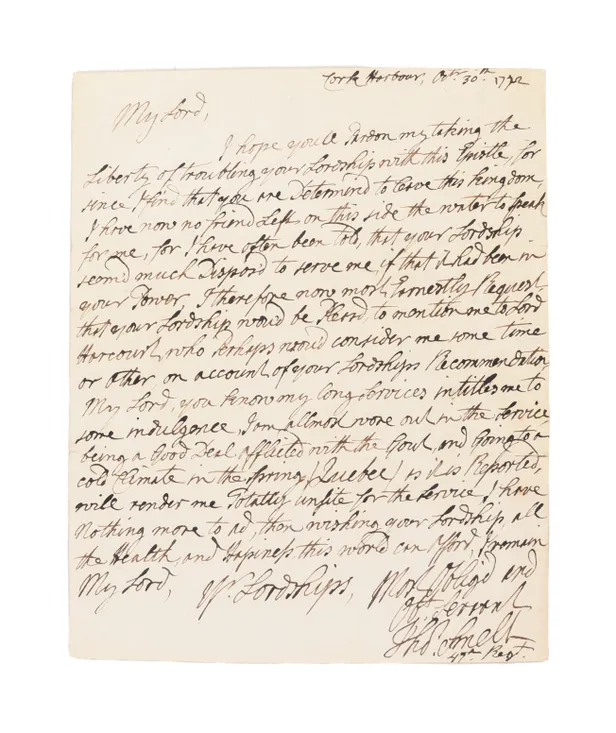 Cork Harbour, Octr. 30th. 1772
My Lord,
I hope youll Pardon my taking the
Liberty of troubling your Lordship with this Epistle, for
since I find that you are Determind to leave this Kingdom,
I have now no friend Left on this side the water to speak
for me, for I have often been told, that your Lordship
seem'd much Disposd to serve me, if that it had been in
your Power, I therefore now most Earnestly Request
that your Lordship woud be Pleasd, to mention me to Lord
Harcourt, who Perhaps woud consider me some time
or other on account of your Lordships Recommendation
My Lord, you know my long services intitles me to
some indulgence, I am allmost wore out in the service,
being a Good Deal afflicted with the Gout, and Going to a
cold Climate in the spring (Quebec) as it is Reported,
will render me Totally unfite for the service, I have
Nothing more to ad, then wishing your Lordship, all
the Health, and Hapiness this world can afford, I remain
My Lord, Yr. Lordships, Most Obligd and
Obt. Servant
Thos. Smelt
47th. Regt.